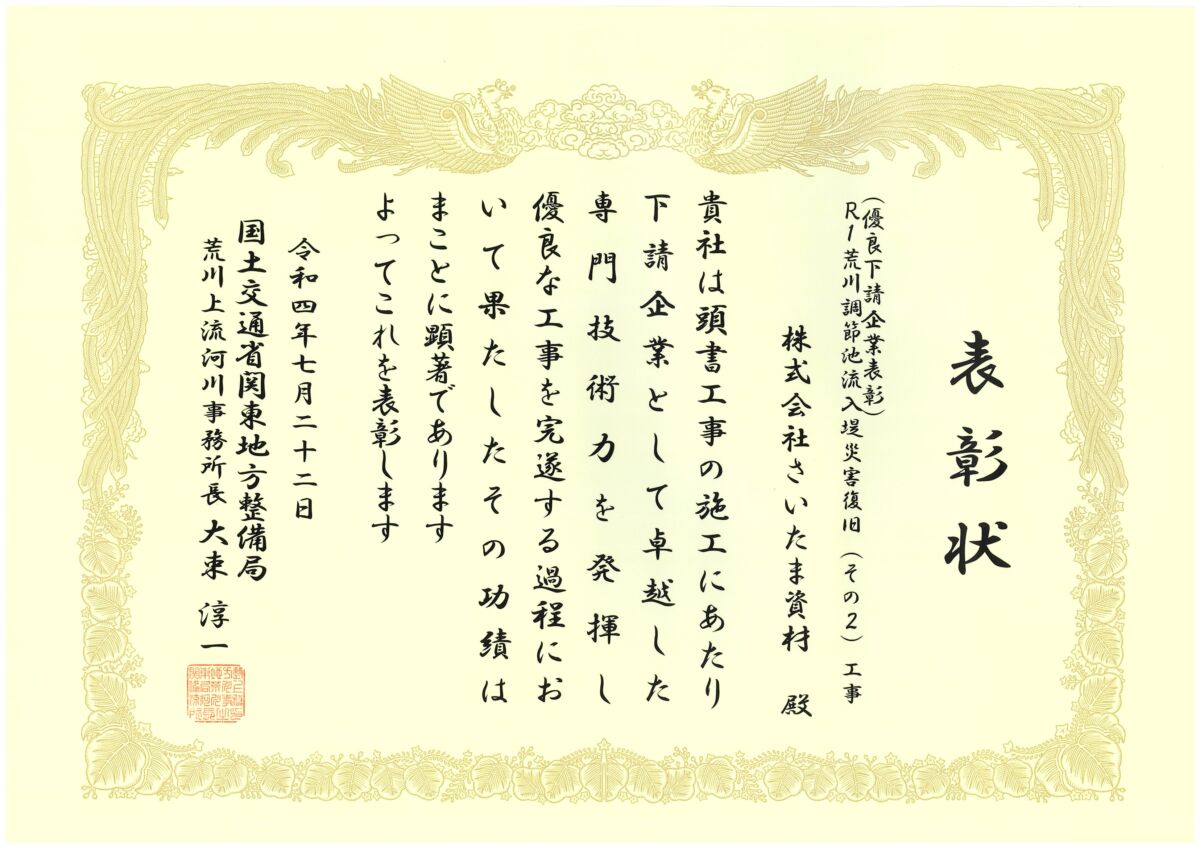 表彰状
(優良下請企業表彰)
R1荒川調節池流入堤災害復旧(その2)工事
株式会社さいたま資材 殿
貴社は頭書工事の施工にあたり
下請企業として卓越した
専門技術力を発揮し
優良な工事を完遂する過程にお
いて果たしたその功績は
まことに顕著であります
よってこれを表彰します
令和四年七月二十二日
国土交通省関東地方整備局
荒川上流河川事務所長 大束 淳一